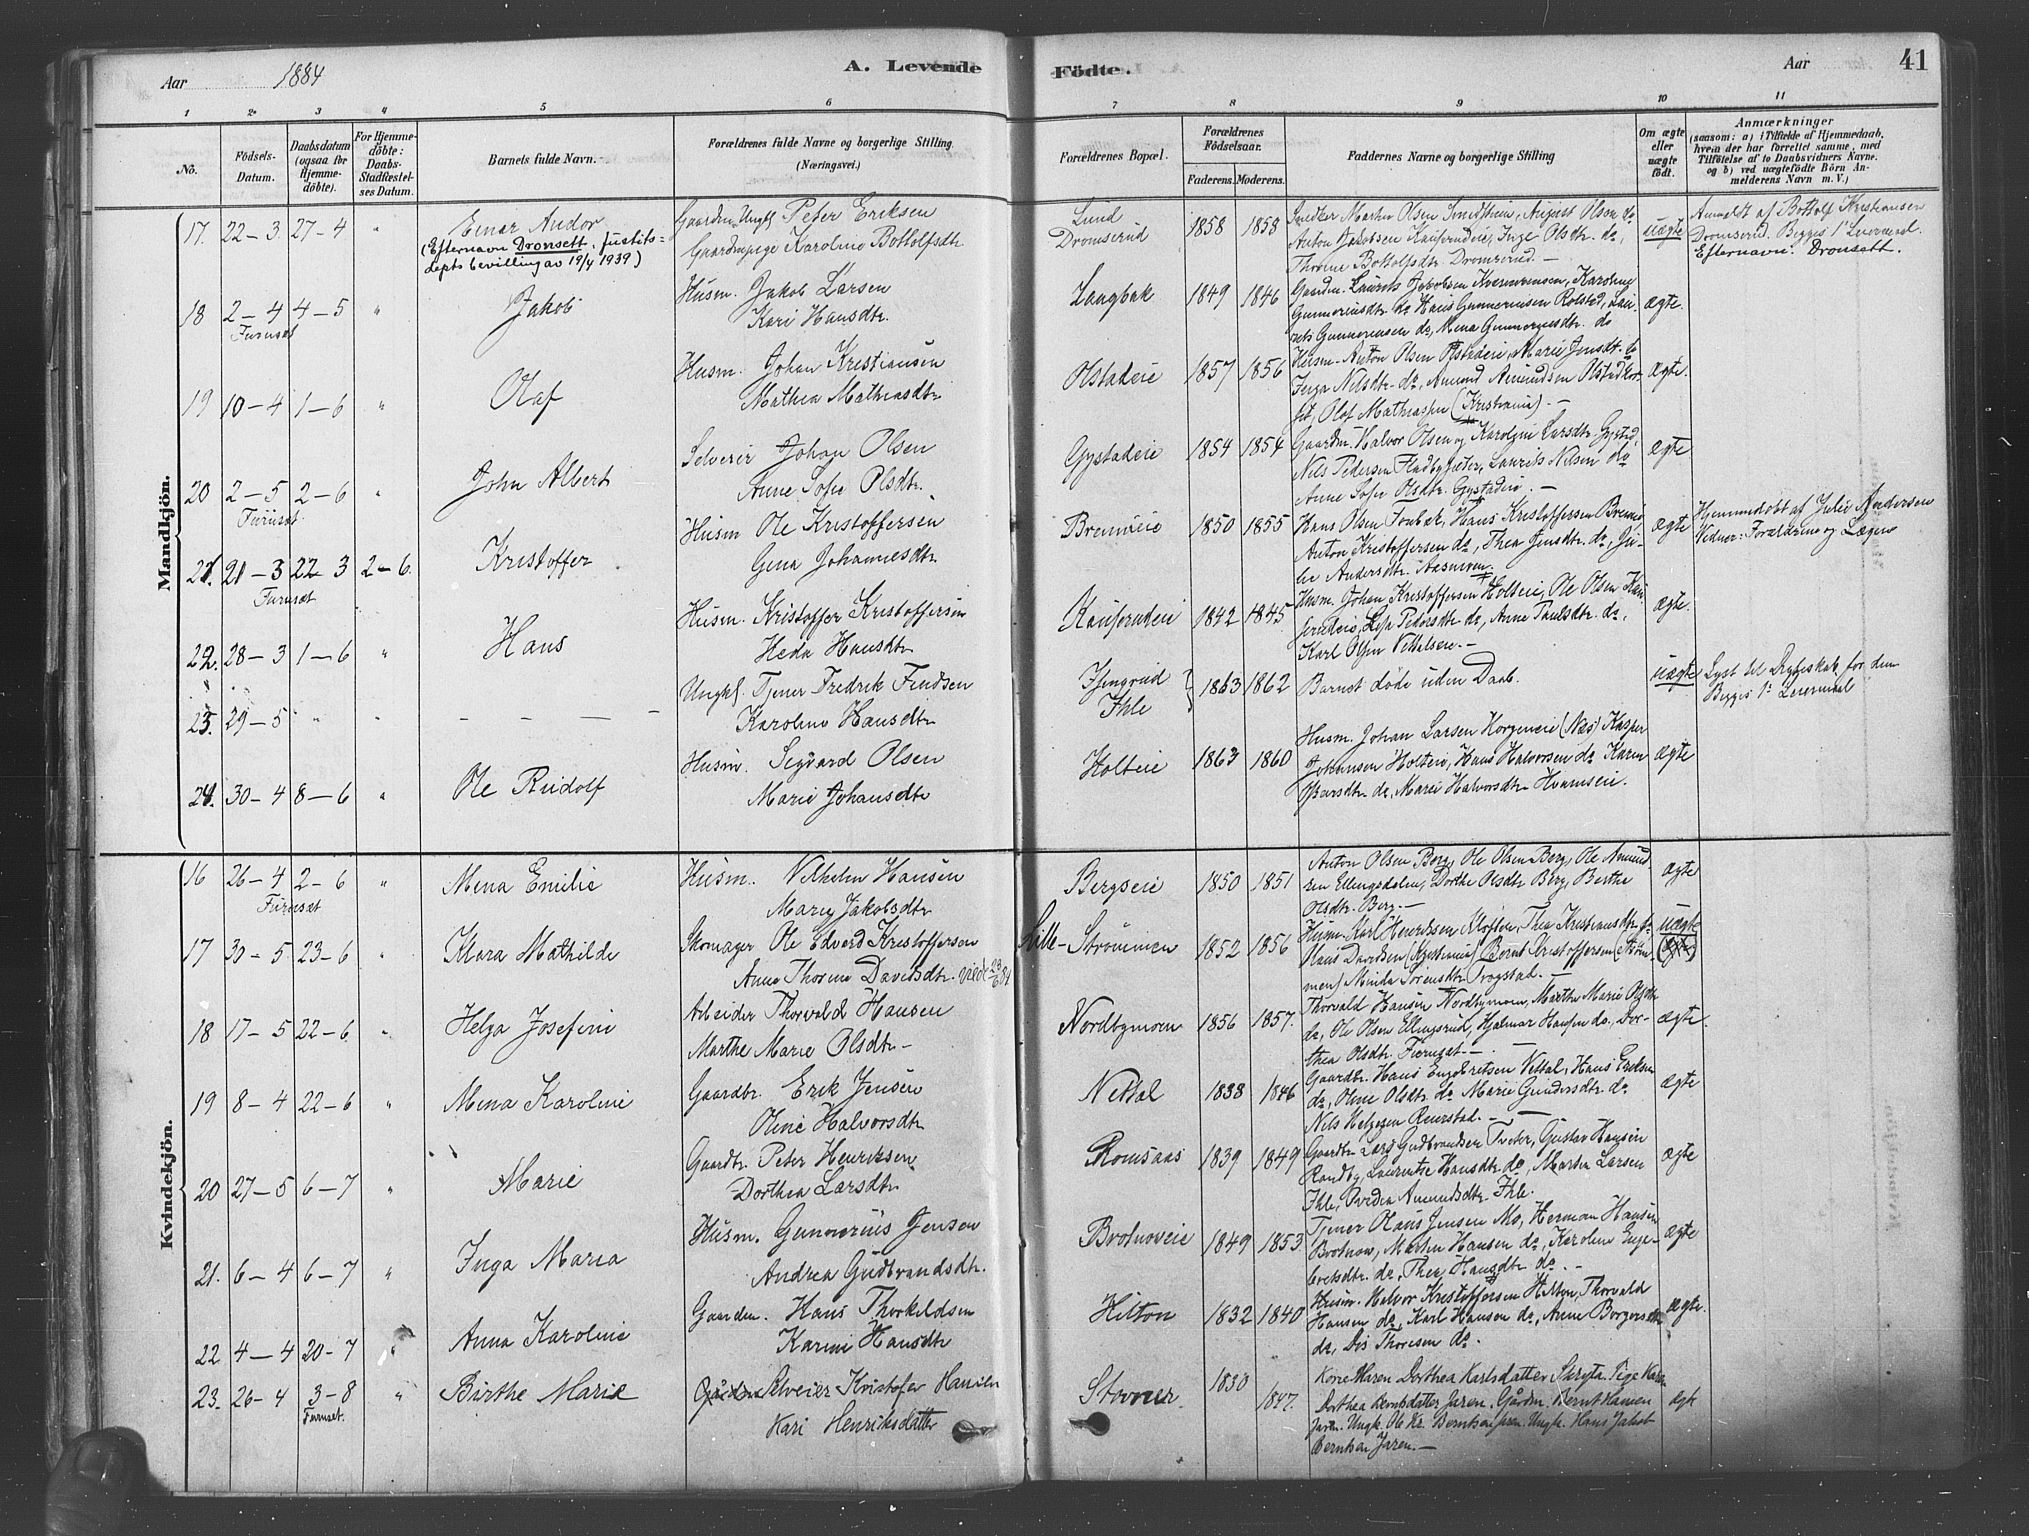 Aar 1884 A. Levende Födte. Aar 41
1 2 3 4 5 6 7 8 9 10 11
No.
Födsels-Datum.
Daabsdatum (ogsaa for Hjemmedöbte).
For Hjemmedöbte: Daabs-Stadfæstelses Datum.
Barnets fulde Navn.
Forældrenes fulde Navne og borgerlige Stilling. (Næringsvei.)
Forældrenes Bopæl.
Forældrenes Födselsaar.
Faderens. Moderens.
Faddernes Navne og borgerlige Stilling
Om ægte eller uægte födt.
Anmærkninger
(saasom: a) i Tilfælde af Hjemmedaab,
hvem der har forrettet samme, med
Tilföielse af to Daabsvidners Navne.
og b) ved uægtefödte Börn Anmelderens Navn m. V.)
Mandkjön.
17. 22-3 27-4 " Einar Andor
(Efternavn Dronsett, justits-
depts bevilling av 19/4 1939)
Gaardm. Ungk. Peter Eriksen
Gaardmpige Karoline Bottolfsdtr.
Lund
Dromserud
1858 1858
Snedker Martin Olsen August Olsen do
Anton Jakobsen Inge Olsdtr. do,
Thorine Bottolfsdtr. Dromserud. —
uægte
Anmeldt af Bottolf Kristiansen
Dromserud. Begges 1ste Leiermaal.
Efternavn: Dronsett.
18 2-4 4-5 " Jakob
Furuset
Husm. Jakob Larsen
Kari Hansdtr.
Langbak 1849 1846
Gaardm. Laurits Jakobsen Karoline
Gunneriusdtr. do Hans Gunneriusen Rolstad, Lau-
rets Gunneriusen do, Mina Gunneriusdtr. do
ægte.
19 10-4 1-6 " Olaf
Husm. Johan Kristiansen
Mathea Mathiasdtr
Olstadeie 1857 1856
Husm. Anton Olsen Olstadeie, Marie Jensdtr. do
Inga Nilsdtr. do, Amund Amundsen
Olof Mathiassen (Kristiania). —
ægte.
20 2-5 2-6 " John Albert
Furuset
Selveier Johan Olsen
Anne Sofie Olsdtr.
Gystadeie 1854 1854
Gaardm. Halvor Olsen og Karoline Larsdtr. Gystad,
Nils Pedersen Fladbysæter, Laurits Nilsen do
Anne Sofie Olsdtr. Gystadeie. —
ægte
21. 21-3 22-3 2-6. Kristoffer
Furuset
Husm Ole Kristoffersen
Gina Johannesdtr
Brenneie 1850 1855
Hans Olsen Fonbæk, Hans Kristoffersen
Anton Kristoffersen do, Thea Jensdtr. do, Ju-
lie Andersdtr. Aasmoen.
ægte
Hjemmedöbt af Julie Andersen
Vidner: Forældrene og Lægen
22. 28-3 1-6 " Hans
Husm. Kristoffer Kristoffersen
Heda Hansdtr
1842 1845
Husm. Johan Kristoffersen Holteie, Ole Olsen
Lisa Pedersdtr do, Anne Paulsdtr. do,
Karl Olsen —
ægte.
23. 29-5 " " — — — —
Ungk. Tjener Fredrik Findsen
Karoline Hansdtr
Isingrud
Ihle
1863 1862
Barnet döde uden Daab.
uægte
Lyst til Ægteskab for dem
Begges 1ste Leiermaal
24. 30-4 8-6 " Ole Rudolf
Husm. Sigvard Olsen
Marie Johansdtr
Holteie 1863 1860
Husm. Johan Larsen Horgeneie (Næs) Kasper
Johansen Holteie, Hans Halvorsen do Karen
do, Marie Halvorsdtr
ægte
Kvindekjön.
16 26-4 2-6 " Mina Emilie
Furuset
Husm. Vilhelm Hansen
Marie Jakobsdtr
Bergseie 1850 1851
Anton Olsen Berg, Ole Olsen Berg, Ole Amund-
sen Ellingsdalen, Dorthe Olsdtr Berg, Berthe
Olsdtr. Berg. —
ægte
17 30-5 23-6 " Klara Mathilde
Skomager Ole Edvard Kristoffersen
Anne Thorine Davidsdtr. viede 23/6 84
Lille-Strømmen 1852 1856
Husm. Karl Henriksen Thea Kristiansdtr. do
Klaus Davidsen (Kristiania) Bernt Kristoffersen (Ström-
men) Minda Sörensdtr. Trogstad. —
uægte
(ægte)
18 17-5 22-6 " Helga Josefine
Arbeider Thorvald Hansen
Marthe Marie Olsdtr —
Nordbymoen 1856 1857.
Thorvald Hansen Nordbymoen, Marthe Marie Olsdtr
do, Ole Olsen Ellingsrud, Hjalmar Hansen do, Dor-
thea Olsdtr. Furuset. —
ægte.
19 8-4 22-6 " Mina Karoline
Gaardbr. Erik Jensen
Oline Halvorsdtr
Nettal 1838 1846
Gaardbr. Hans Engebretsen Nettal, Hans Eriksen
do, Oline Olsdtr do Marie Gundersdtr do
Nils Helgesen —
ægte
20 27-5 6-7 " Marie
Gaardbr. Peter Henriksen
Dorthea Larsdtr
Romsaas 1839 1849
Gaardbr. Lars Gudbrandsen Tveter, Gustav Hansen
Randby, Laurentse Hansdtr do, Martin Larsen
Ihle, Amundsdtr Ihle.
ægte
21. 6-4 6-7 " Inga Maria
Husm. Gunnerius Jensen
Andrea Gudbrandsdtr.
Brotnoveie 1849 1853.
Tjener Olaus Jensen Mo, Herman Hansen
Brotnov, Martin Hansen do, Karoline Enge-
bretsdtr. do, Thea Hansdtr do. —
ægte
22 4-4 20-7 " Anna Karoline
Gaardm. Hans Thorkildsen
Karine Hansdtr
Hilton 1832 1840
Husm. Halvor Kristoffersen Hilton, Thorvald
Hansen do, Karl Hansen do, Anne
do, Dis Thoresen do.
ægte.
23. 26-4 3-8 " Birthe Marie
Furuset.
Gårdm Selveier Kristofer Hansen
Kari Henriksdatter
Stovner. 1830 1847.
Kone Maren Dorthea Karlsdatter Pige Karen
Dorthea Berntsdatter Jaren. Gårdm. Bernt Hansen
Jaren. Ungk. Ole Kr. Berntsen Jaren. Ungk. Hans Jakob
Berntsen Jaren. —
ægte